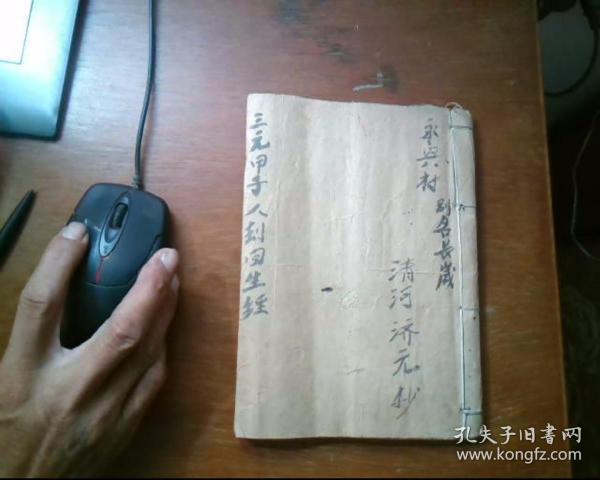 永兴村
别名长岁
清河济元抄
三元甲子人刻回生经
孔夫子旧书网
www.kongfz.com